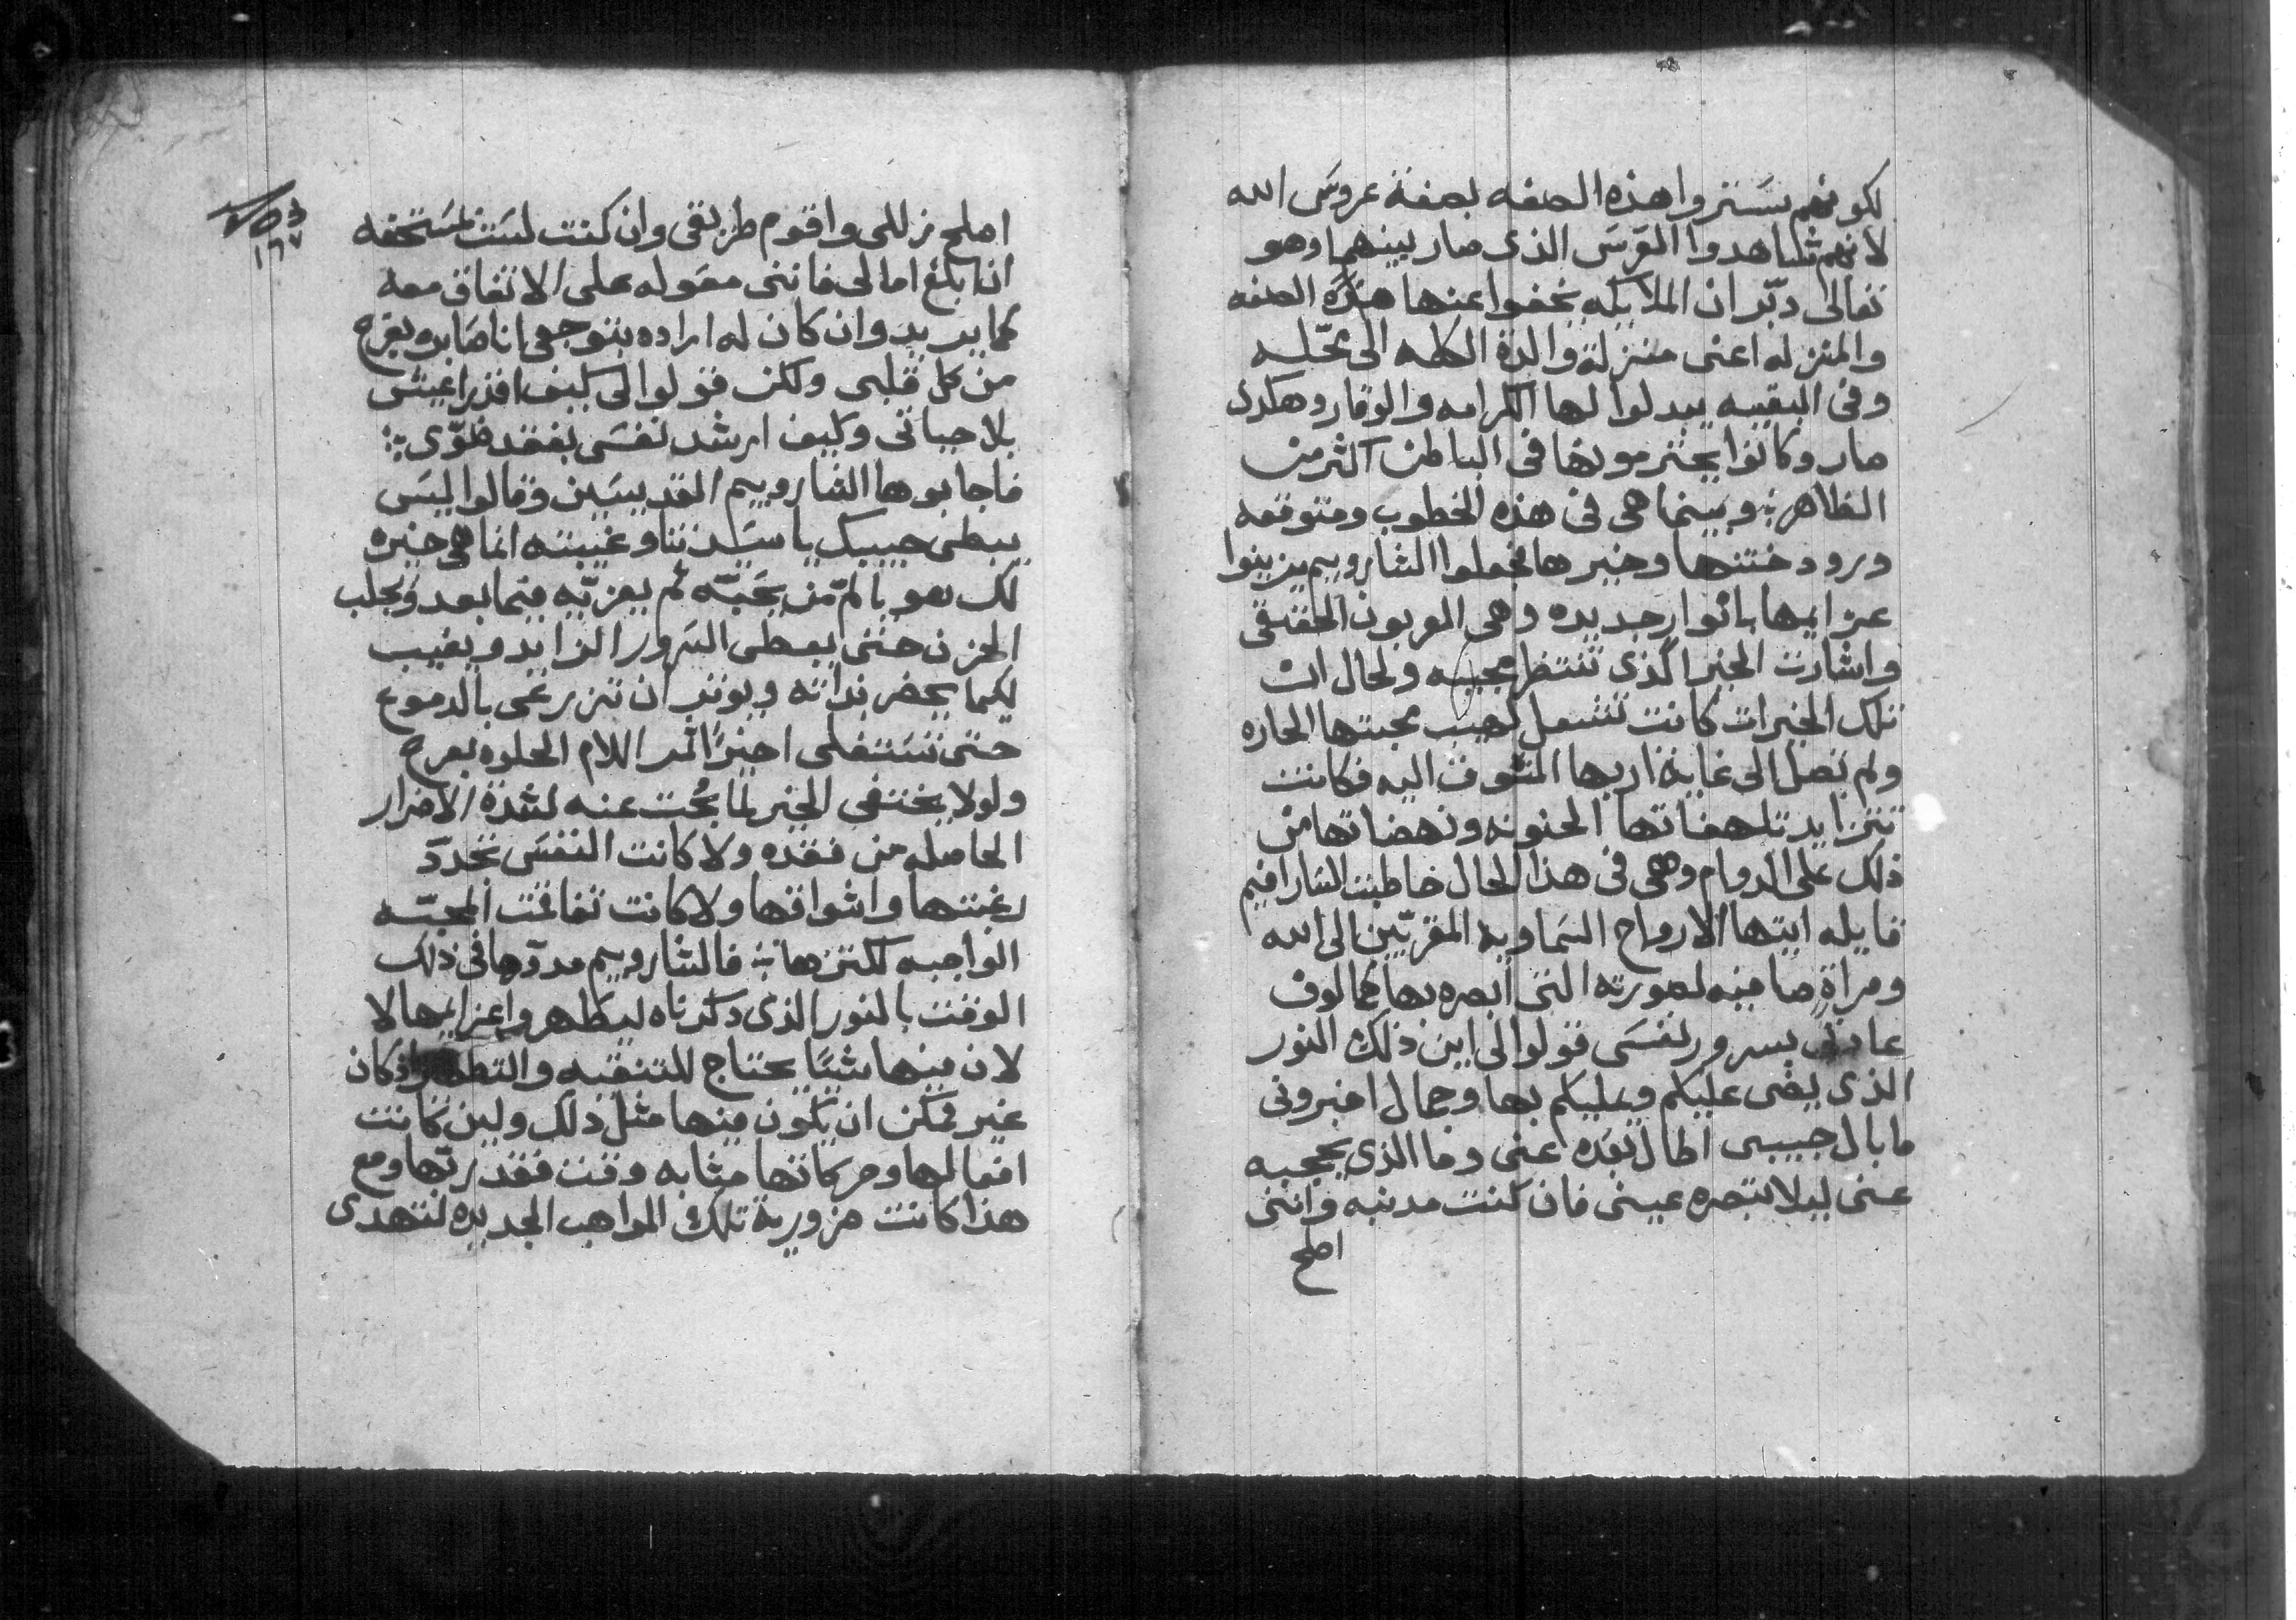 لكونهم يستروا هذه الصفه بصفة عروس الله
لانهم شاهدوا العرس الذى صار بينهما وهو
تعالى دبّر ان الملايكه يخفوا عنها هذه الصفه
والمنزله اعنى منزلة والدة الكلمه الى محله
وفى البقيه يبدلوا لها الكرامه والوقار وهكدى
صار وكانوا يحترمونها فى الباطن اكثر من
الظاهر وبينما هى فى هذه الخطوب ومتوقعه
ورود ختنها وخيرها فجعلوا الشاروبيم يزينوا
عزايمها بانوار جديده وهى العربون الحقيقى
واشارت الخير الذى تنتظر مجيه ولحال ان
تلك الخيرات كانت تشعل لهيب محبتها الحاره
ولم تصل الى غاية اربها المتشوف اليه فكانت
تتزايد تلهفاتها الحنونه ونهضاتها من
ذلك على الدوام وهى فى هذا الحال خاطبت السارافيم
قايله ايتها الارواح السماويه المقربّين الى الله
ومراةٍ صافيه لصورته التى ابصره بها كمالوف
عادتى بسرور نفسى قولوا لى اين ذلك النور
الذى يضى عليكم وعليكم بها وجمال اخبرونى
ما بال حبيبى اطال بعده عنى وما الذى يحجبه
عنى ليلا تبصره عينى فان كنت مدنبه واننى
اصلح
١٦٧
اصلح زللى واقوم طريقى وان كنت لست لمستحقه
ان ابلغ امالى فاننى معوله على الاتفاق معه
كما يريد وان كان له اراده بتوجعى انا صابره بفرح
من كل قلبى ولكن قولوا لى كيف اقدر اعيش
بلا حياتى وكيف ارشد نفسى بفقد ضوّى
فاجابوها الشاروبيم القديسين وقالوا ليس
يبطى حبيبك يا سيدتنا وغيبته انما هى خيره
لك هو يالمّ من يحبّه ثم يعزيّه فيما بعد ويجلب
الحزن حتى يعطى السرور الزايد ويغيب
لكيما يحضر بداته ويوثر ان تزرعى بالدموع
حتى تستغلى اخيراً اثمر الالام الحلوه بفرح
ولولا يختفى الخير لما بُحت عنه لشدة الاضرار
الحاصله من فقده ولا كانت النفس تجددّ
رغبتها واشواقها ولا كانت تفاقمت المحبّه
الواجبه لكنزها فالشاروبيم مدوّها فى ذلك
الوقت بالنور الذى دكرناه ليطهروا عزايمها لا
لان فيها شيًا يحتاج للتنقيه والتطهير اذ كان
غير ممكن ان يكون فيها مثل ذلك ولين كانت
افعالها وحركاتها مثابه وقت فقد ربّها ومع
هذا كانت ضرورية تلك المواهب الجديده لتهدى